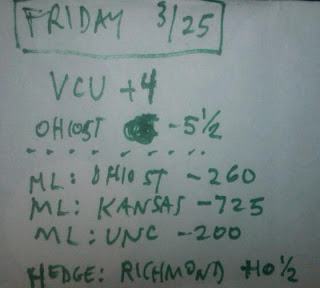 FRIDAY 3/25
VCU +4
OHIOST -5½
ML: OHIO ST -260
ML: KANSAS -725
ML: UNC -200
HEDGE: RICHMOND +10½